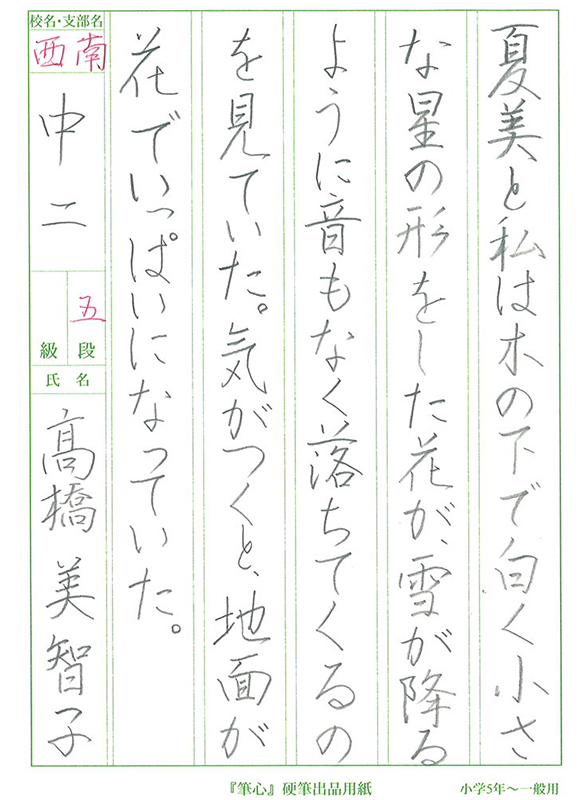 夏美と私は木の下で白く小さ
な星の形をした花が、雪が降る
ように音もなく落ちてくるの
を見ていた。気がつくと、地面が
花でいっぱいになっていた。
校名・支部名
西南
中二
五
級 段
氏 名
髙橋 美智子
『筆心』硬筆出品用紙
小学5年〜一般用